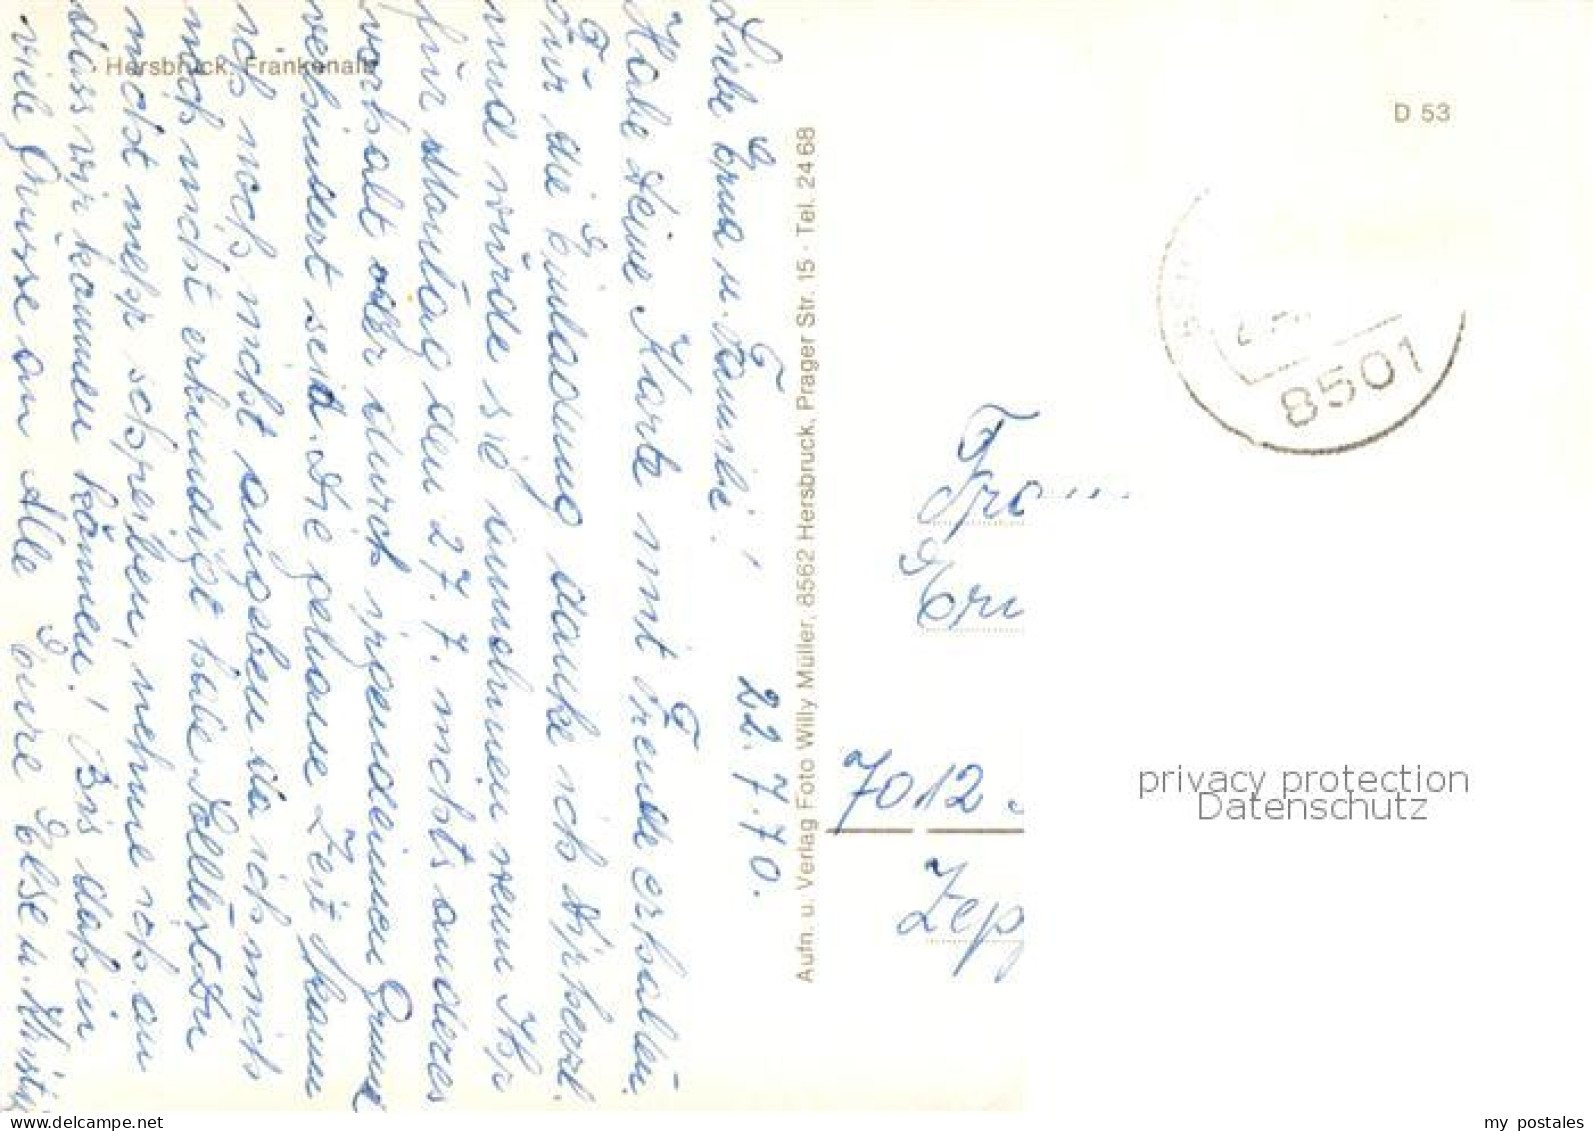 Hersbruck, Frankenalb
D 53
22.7.70.
Liebe Erna u. Familie!
Habe Deine Karte mit Freude erhalten.
Für die Einladung danke ich Dir herzl.
und würde sie annehmen wenn Ihr
für Montag den 27.7. nichts anderes
vorhabt oder durch irgendeinen Grund
verhindert seid. Die genaue Zeit kann
ich noch nicht angeben da ich mich
noch nicht erkundigt habe. Solltest Du
nicht mehr schreiben, nehme ich an
dass wir kommen können! Bis dahin
viele Grüsse an Alle Eure Else u.
Aufn. u. Verlag Foto Willy Müller, 8562 Hersbruck, Prager Str. 15 · Tel. 24 68
8501
Fra
Ern
7012
Zep
privacy protection
Datenschutz
my postales